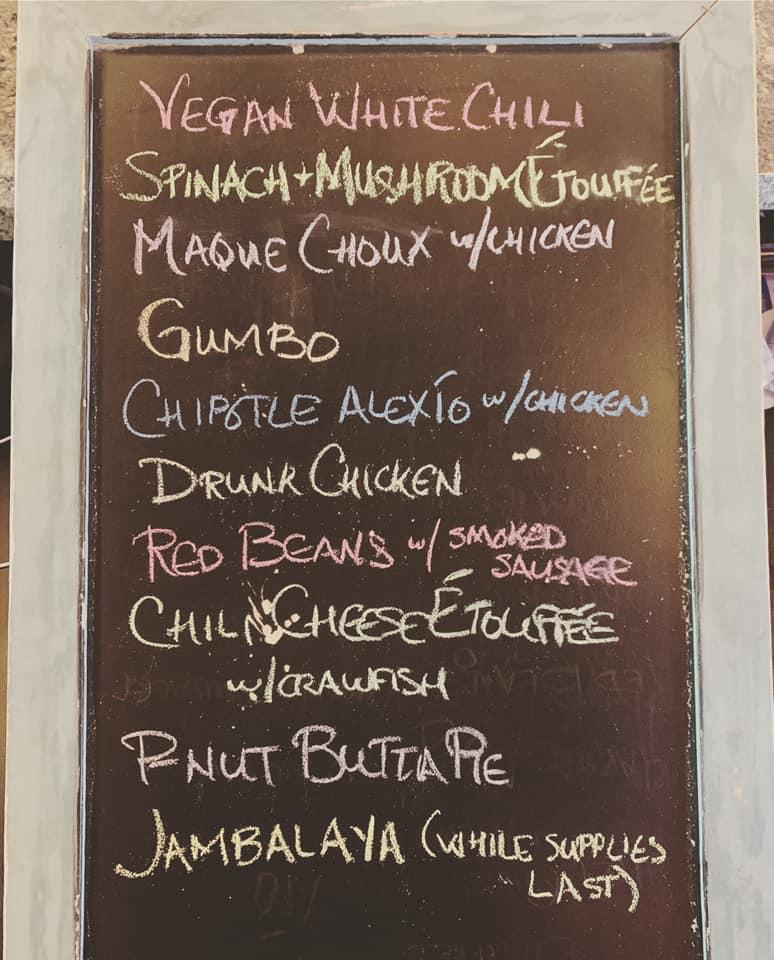 VEGAN WHITE CHILI
SPINACH + MUSHROOM ÉTOUFFÉE
MAQUE CHOUX w/CHICKEN
GUMBO
CHIPOTLE ALEXIO w/CHICKEN
DRUNK CHICKEN
RED BEANS w/ SMOKED
SAUSAGE
CHILI CHEESE ÉTOUFFÉE
w/CRAWFISH
P-NUT BUTTA PIE
JAMBALAYA (WHILE SUPPLIES
LAST)